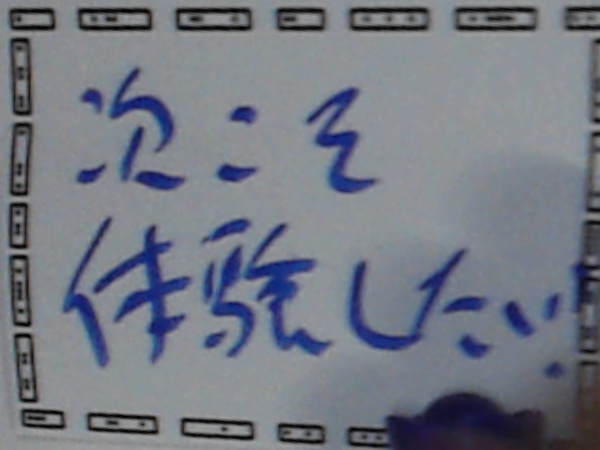 次こそ
体験したい!